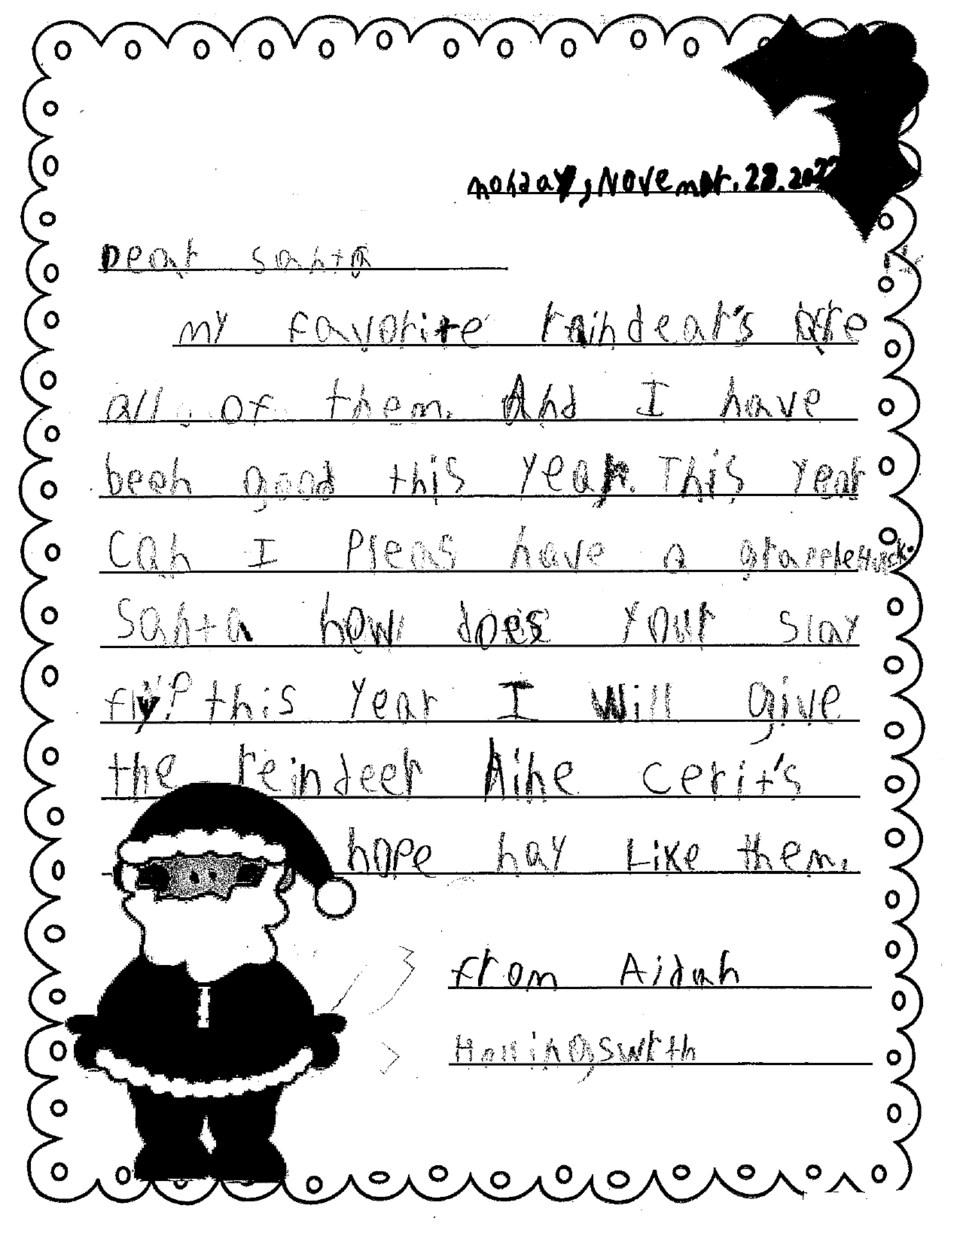 monday, Novembr. 28. 2022
Dear santa
my favorite raindear's are
all of them. And I have
been good this year. This year
Can I Pleas have a
santa how does your slay
fly? this year I will give
the reindeer nine cerit's
hope hay Like them.
from Aidan
Hollingswrth